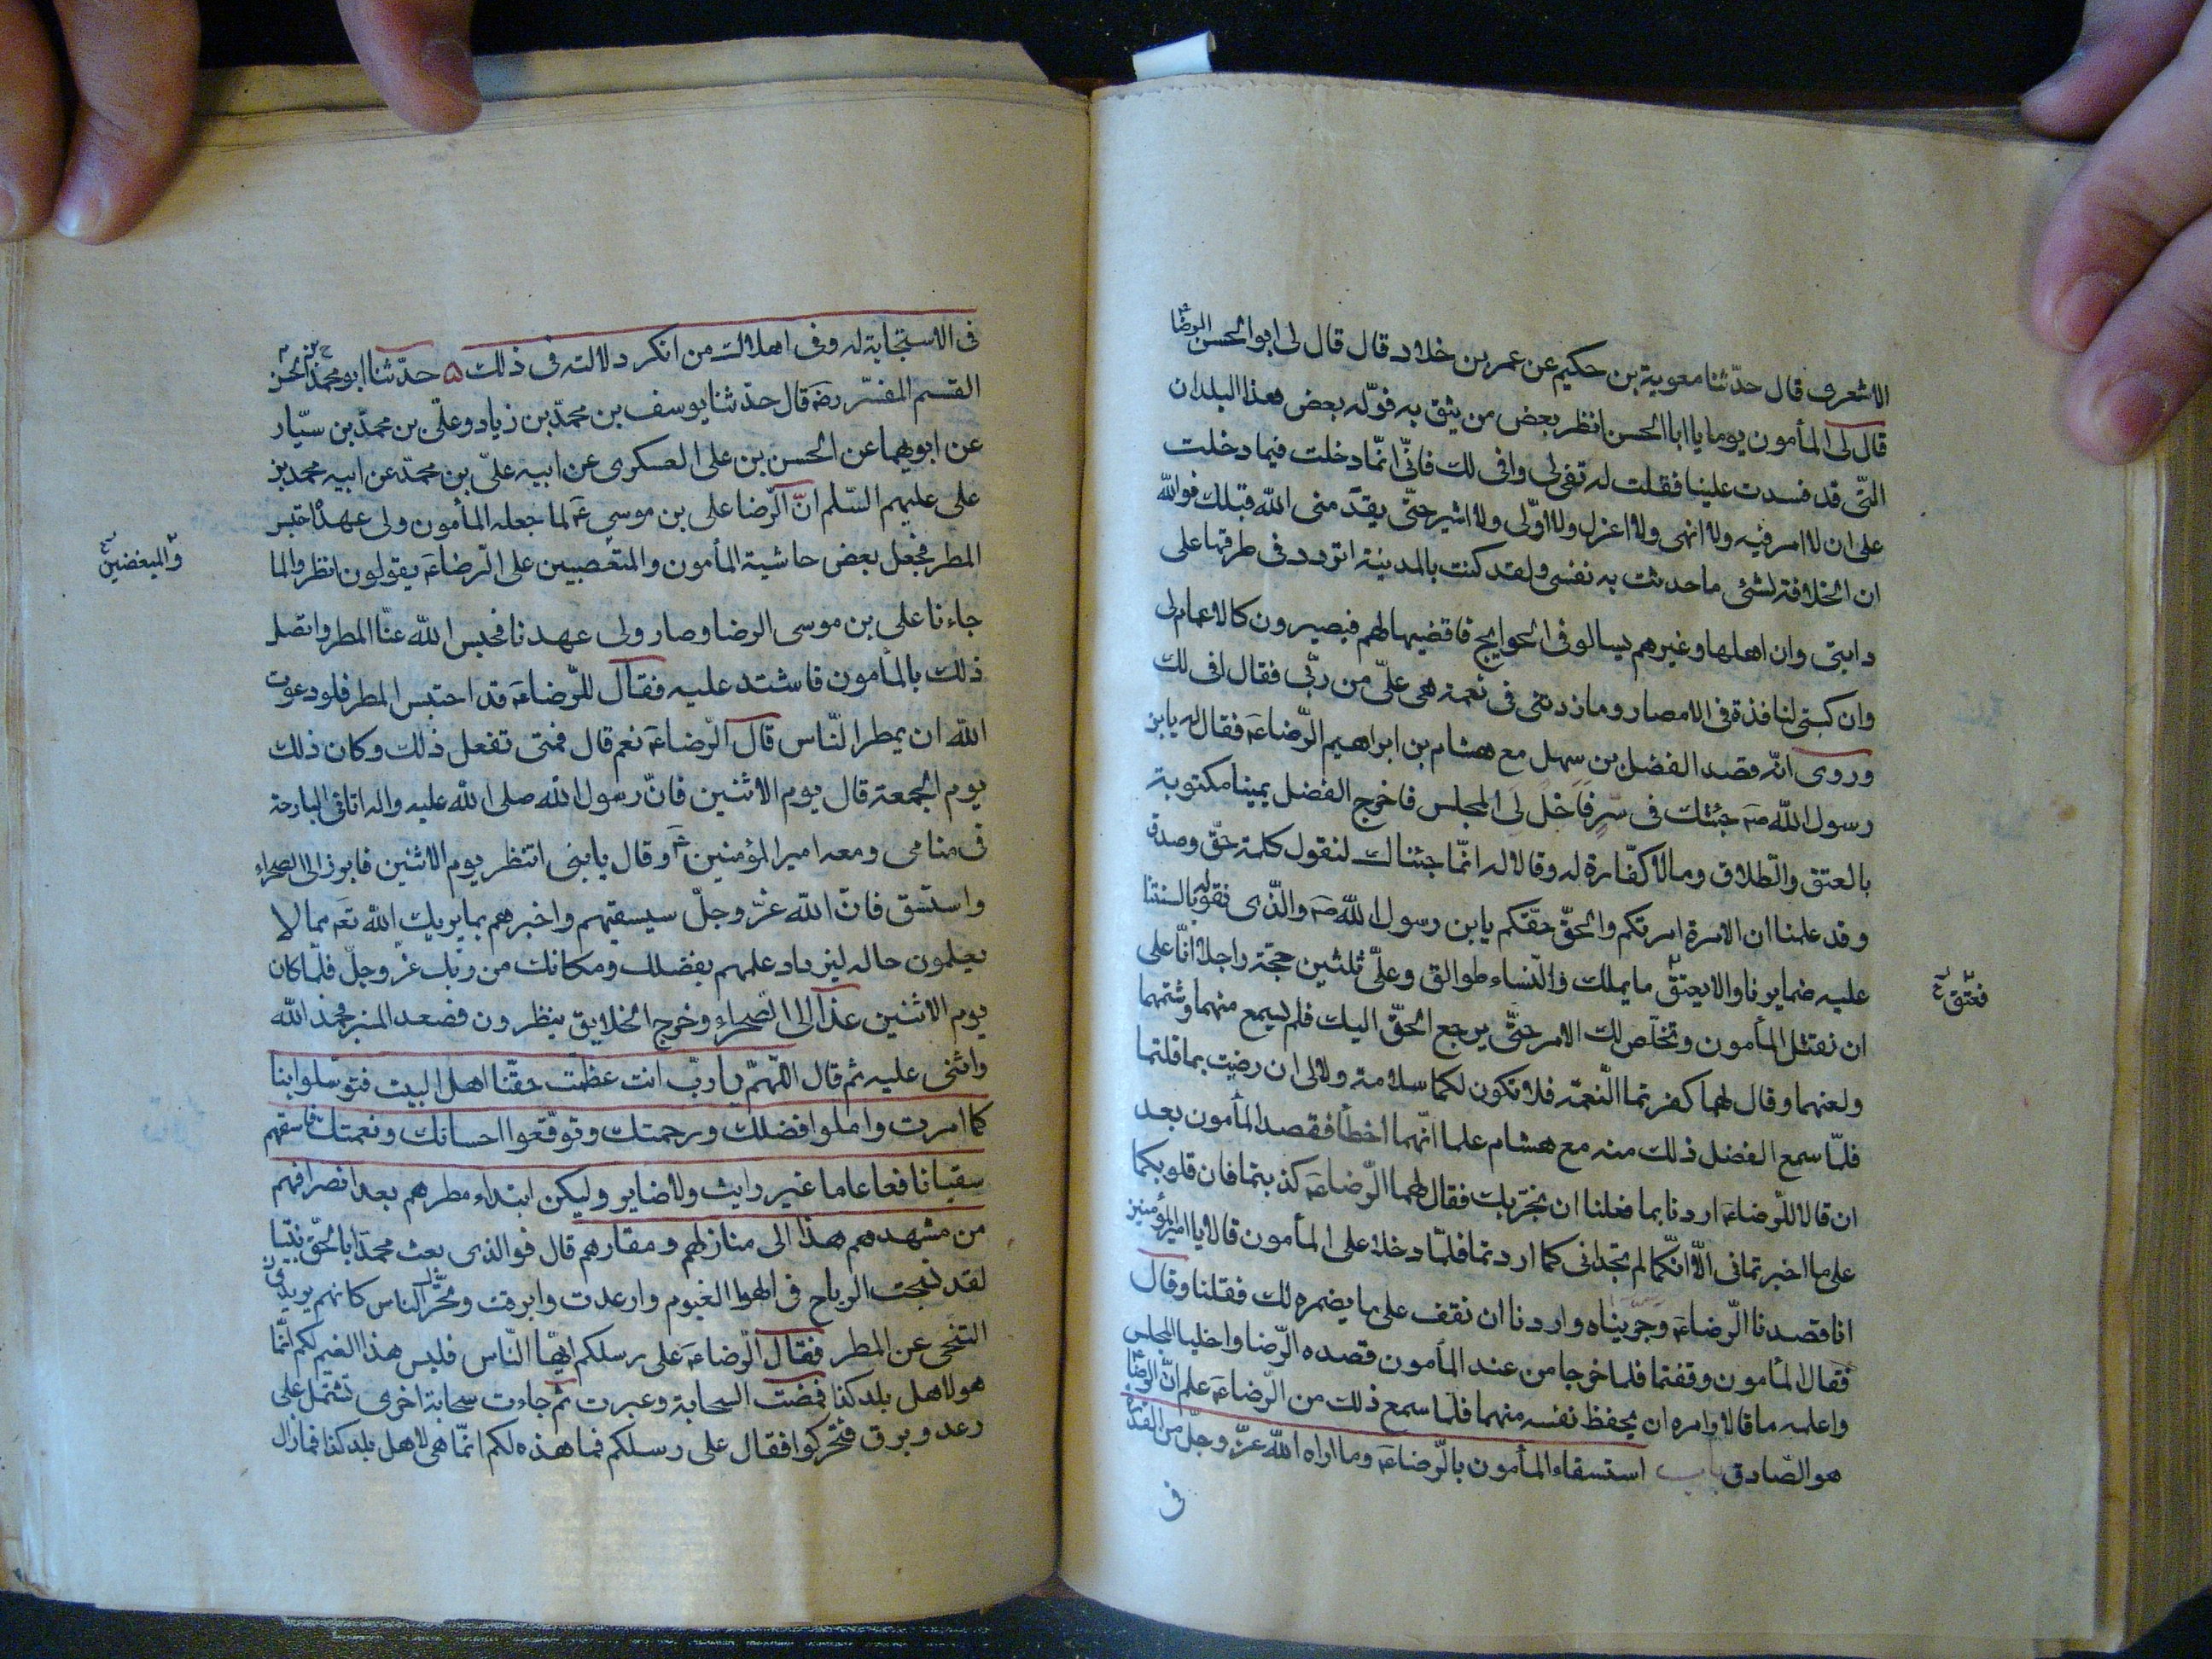 الاشعرى قال حدّثنا معوية بن حكيم عن عمر بن خلاد قال قال لى ابو الحسن الرضا ع
قال لى المأمون يوما يا ابا الحسن انظر بعض من يثق به نولّه بعض هذا البلدان
التّى قد فسدت علينا فقلت له تفى لى وافى لك فانّى انّما دخلت فيما دخلت
على ان لا امر فيه ولا انهى ولا اعزل ولا اوّلى ولا اشير حتّى يقدّمنى الله قبلك فوالله
ان الخلافة لشئ ما حدثت به نفسى ولقد كنت بالمدينة اتردد فى طرقها على
دابتى وان اهلها وغيرهم يسالو فى الحوايج فاقضيها لهم فيصيرون كالاعمام لى
وان كتبى لنافذة فى الامصار وما زدتنى فى نعمة هى علىّ من ربّى فقال افى لك
وروى انّه قصد الفضل بن سهل مع هشام بن ابراهيم الرّضا ع فقال له يا بن
رسول الله ص جئتك فى سرّ فاخل لى المجلس فاخرج الفضل يمينا مكتوبة
بالعتق والطّلاق وما لا كفّارة له وقالا له انّما جئناك لنقول كلمة حقّ وصدق
وقد علمنا ان الامرة امرتكم والحقّ حقّكم يا بن رسول الله ص والّذى نقوله بالسنتنا
عليه ضمايرنا والا يعتق ما يملك والنّساء طوالق وعلىّ ثلثين حجّة راجلا انّا على
ان نقتل المأمون وتخلّص لك الامر حتّى يرجع الحقّ اليك فلم يسمع منهما وشتمهما
ولعنهما وقال لهما كفرتما النّعمة فلا تكون لكما سلامة ولا لى ان رضيت بما قلتما
فلمّا سمع الفضل ذلك منه مع هشام علما انّهما اخطأ فقصد المأمون بعد
ان قالا للرّضا ع اردنا بما فعلنا ان نجرّبك فقال لهما الرّضا ع كذبتما فان قلوبكما
على ما اخبرتمانى الّا انّكما لم تجدانى كما اردتما فلمّا دخلا على المأمون قالا يا امير المؤمنين
انا قصدنا الرّضا ع وجرّبناه واردنا ان نقف على ما يضمره لك فقلنا وقال
فقال المأمون وقفتما فلما خرجا من عند المأمون قصده الرّضا واخليا المجلس
واعلمه ما قالا وامره ان يحفظ نفسه منهما فلمّا سمع ذلك من الرّضا ع علم انّ الرّضا ع
هو الصّادق باب استسقاء المأمون بالرّضا ع وما اراه الله عزّ وجلّ من القدرة
فى
فعتق
فى الاستجابة له وفى اهلاك من انكر دلالته فى ذلك ۵ حدّثنا ابو محمد الحسن بن
القسم المفسّر رضه قال حدّثنا يوسف بن محمّد بن زياد وعلىّ بن محمّد بن سيّار
عن ابويهما عن الحسن بن على العسكرى عن ابيه علىّ بن محمّد عن ابيه محمد بن
على عليهم السّلم انّ الرّضا على بن موسى ع لما جعله المأمون ولى عهده احتبس
المطر فجعل بعض حاشية المأمون والمتعصبين على الرّضا ع يقولون انظروا لما
والمبغضين
جاءنا على بن موسى الرضا وصار ولى عهدنا فحبس الله عنّا المطر واتصل
ذلك بالمأمون فاشتد عليه فقال للرّضا ع قد احتبس المطر فلو دعوت
الله ان يمطر النّاس قال الرّضا ع نعم قال فمتى تفعل ذلك وكان ذلك
يوم الجمعة قال يوم الاثنين فانّ رسول الله صلى الله عليه واله اتانى البارحة
فى منامى ومعه امير المؤمنين ع وقال يا بنى انتظر يوم الاثنين فابرز الى الصحراء
واستسق فانّ الله عزّ وجلّ سيسقيهم واخبرهم بما يريك الله تع مما لا
يعلمون حاله ليزداد علمهم بفضلك ومكانك من ربّك عزّ وجلّ فلمّا كان
يوم الاثنين غدا الى الصّحراء وخرج الخلايق ينظرون فصعد المنبر فحمد الله
واثنى عليه ثم قال اللّهمّ يا ربّ انت عظّمت حقّنا اهل البيت فتوسّلوا بنا
كما امرت واملوا فضلك ورحمتك وتوقّعوا احسانك ونعمتك فاسقهم
سقيا نافعا عاما غير رايث ولا ضاير وليكن ابتداء مطرهم بعد انصرافهم
من مشهدهم هذا الى منازلهم ومقارهم قال فوالذى بعث محمّدا بالحقّ نبيّا
لقد نسجت الرياح فى الهوا الغيوم وارعدت وابرقت وتحرّك الناس كانهم يريدون
التنحّى عن المطر فقال الرّضا ع على رسلكم ايّها النّاس فليس هذا الغيم لكم انّما
هو لاهل بلد كذا فمضت السحابة وعبرت ثم جاءت سحابة اخرى تشتمل على
رعد وبرق فتحركوا فقال على رسلكم فما هذه لكم انّما هى لاهل بلد كذا فما زال